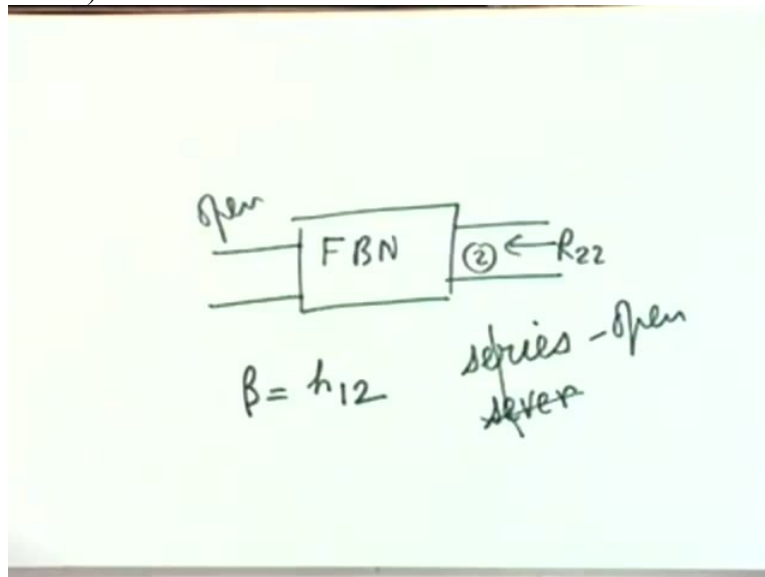 open
FBN ② ← R22
β = h12 series - open
sever